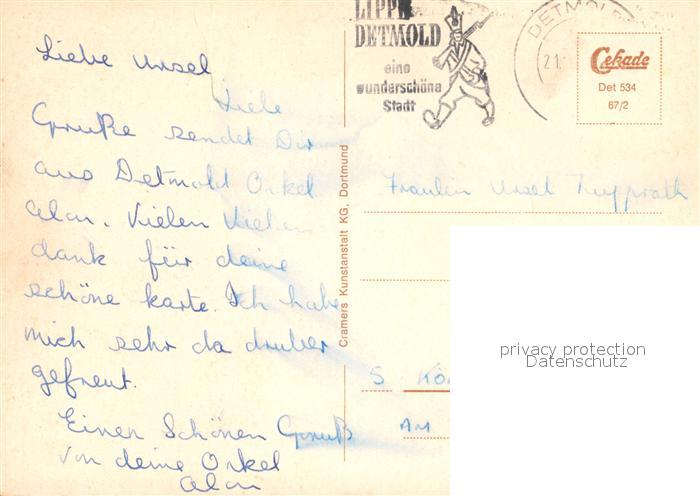 Liebe Ursel
Liebe
Gruße sendet Dir
aus Detmold Onkel
Alan. Vielen Lieben
dank für deine
schöne karte. Ich habe
mich sehr da druber
gefreut.
Einen Schönen Gruß
von deine Onkel
Alan
LIPPE
DETMOLD
eine
wunderschöne
Stadt
DETMOLD
21.
Cekade
Det 534
67/2
Cramers Kunstanstalt KG, Dortmund
Fraulein Ursel
5 KÖ
AM
privacy protection
Datenschutz